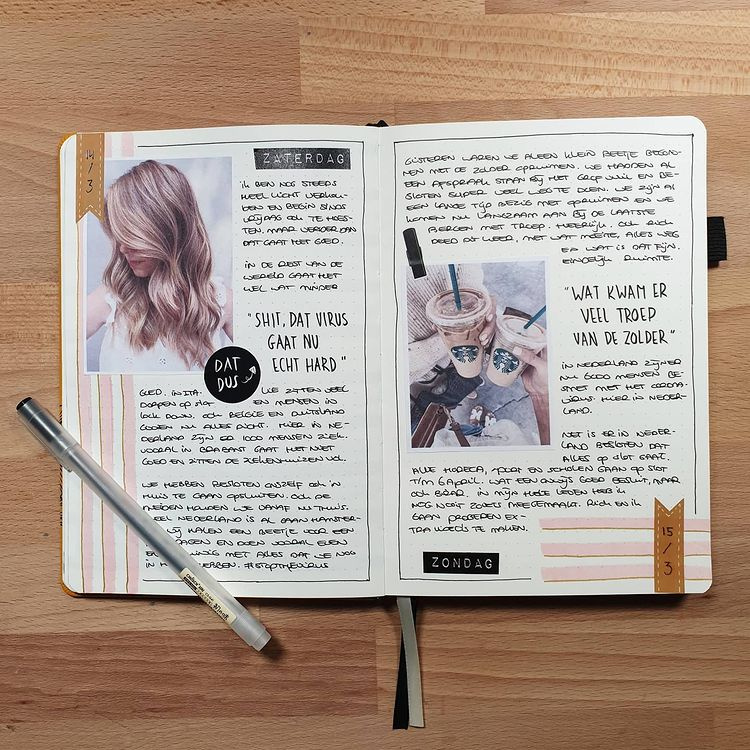 14
/
3
ZATERDAG
IK BEN NOG STEEDS
HEEL LICHT VERKOU-
DEN EN BEGIN SINDS
VRIJDAG OOK TE HOES-
TEN. MAAR VERDER DAN
DAT GAAT HET GOED.
IN DE REST VAN DE
WERELD GAAT HET
WEL WAT MINDER
"SHIT, DAT VIRUS
GAAT NU
ECHT HARD"
DAT
DUS
GOED. IN ITA- WE ZITTEN VEEL
DORPEN OP SLOT EN MENSEN IN
LOCK DOWN. OOK BELGIE EN DUITSLAND
GOOIEN NU ALLES DICHT. HIER IN NE-
DERLAND ZIJN ER 1000 MENSEN ZIEK.
VOORAL IN BRABANT GAAT HET NIET
GOED EN ZITTEN DE ZIEKENHUIZEN VOL.
WE HEBBEN BESLOTEN ONSZELF OOK IN
HUIS TE GAAN OPSLUITEN. OOK DE
MEIDEN HOUDEN WE VANAF NU THUIS.
HEEL NEDERLAND IS AL GAAN HAMSTER-
WIJ HALEN EEN BEETJE VOOR EEN
DAGEN EN DOEN VOORAL EVEN
ZUINIG MET ALLES DAT WE NOG
IN HUIS HEBBEN. #STOPTHEVIRUS
GISTEREN WAREN WE ALLEEN KLEIN BEETJE BEGON-
NEN MET DE ZOLDER OPRUIMEN. WE HADDEN AL
EEN AFSPRAAK STAAN BIJ HET GROFVUIL EN BE-
SLOTEN SUPER VEEL WEG TE DOEN. WE ZIJN AL
EEN LANGE TIJD BEZIG MET OPRUIMEN EN WE
KOMEN NU LANGZAAM AAN BIJ DE LAATSTE
BERGEN MET TROEP. HEERLIJK. OOK RICH
DEED DIT WEER, MET WAT MOEITE, ALLES WEG
EN WAT IS DAT FIJN.
EINDELIJK RUIMTE.
"WAT KWAM ER
VEEL TROEP
VAN DE ZOLDER"
IN NEDERLAND ZIJN ER
NU 6000 MENSEN BE-
SMET MET HET CORONA-
VIRUS. HIER IN NEDER-
LAND.
NET IS ER IN NEDER-
LAND BESLOTEN DAT
ALLES OP SLOT GAAT.
ALLE HORECA, SPORT EN SCHOLEN GAAN OP SLOT
T/M 6 APRIL. WAT EEN ENIGS GOED BESLUIT, MAAR
OOK BIZAR. IN MIJN HELE LEVEN HEB IK
NOG NOOIT ZOIETS MEEGEMAAKT. RICH EN IK
GAAN PROBEREN EX-
TRA VOEDS TE MAKEN.
ZONDAG
15
/
3